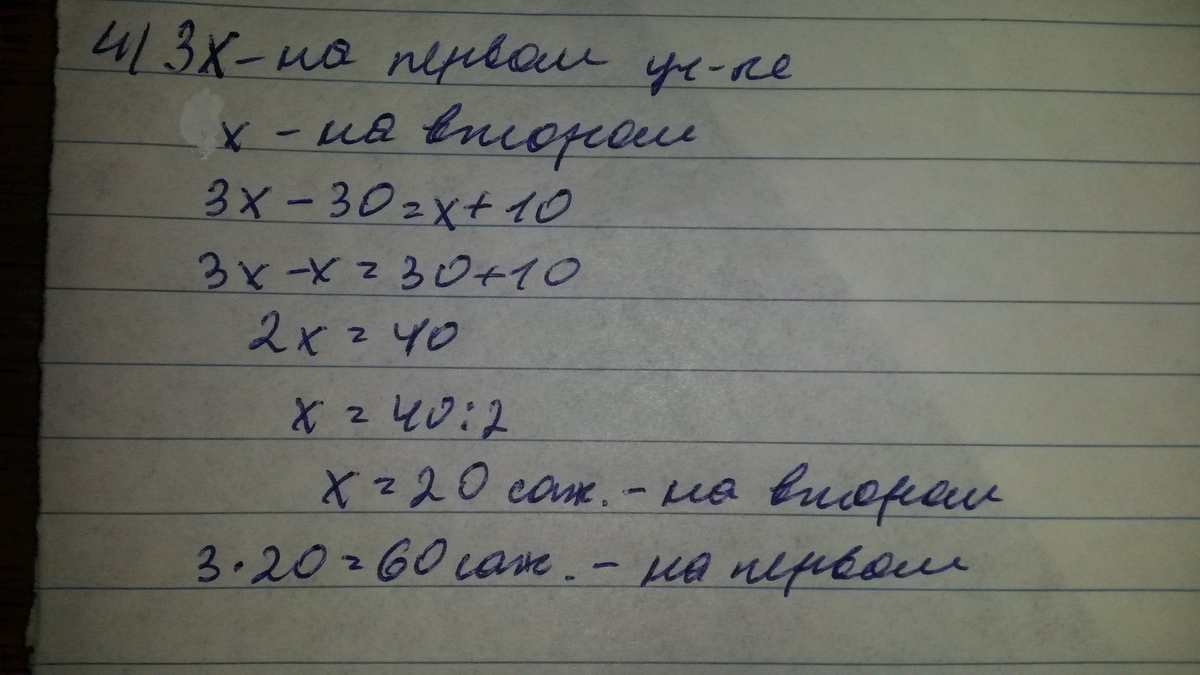 4) 3х - на первом уч-ке
х - на втором
3х - 30 = х + 10
3х - х = 30 + 10
2х = 40
х = 40 : 2
х = 20 саж. - на втором
3 · 20 = 60 саж. - на первом